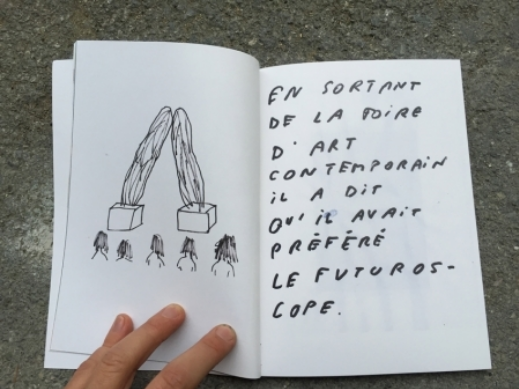 EN SORTANT
DE LA FOIRE
D'ART
CONTEMPORAiN
iL A DiT
QU'iL AVAiT
PRÉFÉRÉ
LE FUTUROS-
COPE.